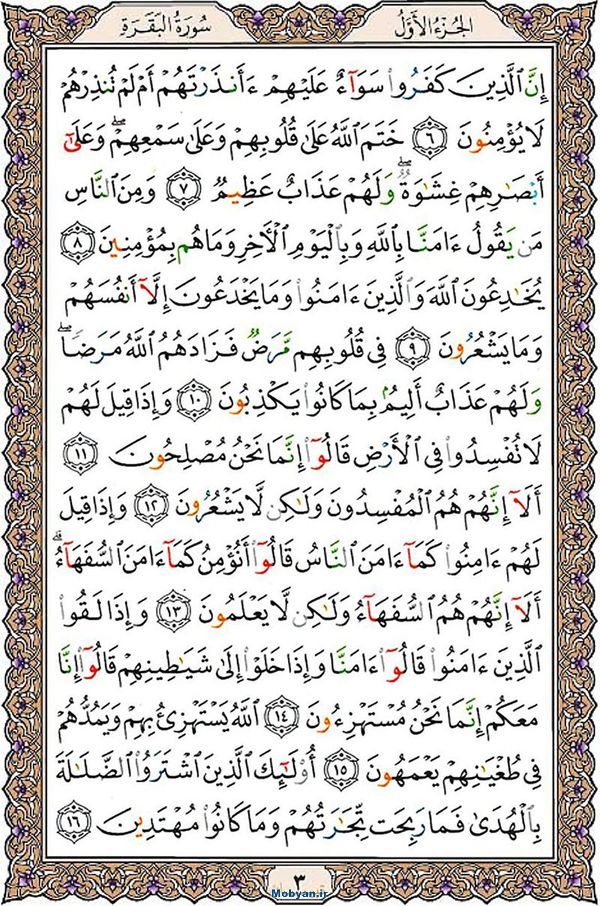 الجُزءُ الأَوَّلُ
سُورَةُ البَقَرَةِ
إِنَّ ٱلَّذِينَ كَفَرُوا۟ سَوَآءٌ عَلَيْهِمْ ءَأَنذَرْتَهُمْ أَمْ لَمْ تُنذِرْهُمْ
لَا يُؤْمِنُونَ ٦ خَتَمَ ٱللَّهُ عَلَىٰ قُلُوبِهِمْ وَعَلَىٰ سَمْعِهِمْ ۖ وَعَلَىٰٓ
أَبْصَـٰرِهِمْ غِشَـٰوَةٌ ۖ وَلَهُمْ عَذَابٌ عَظِيمٌ ٧ وَمِنَ ٱلنَّاسِ
مَن يَقُولُ ءَامَنَّا بِٱللَّهِ وَبِٱلْيَوْمِ ٱلْـَٔاخِرِ وَمَا هُم بِمُؤْمِنِينَ ٨
يُخَـٰدِعُونَ ٱللَّهَ وَٱلَّذِينَ ءَامَنُوا۟ وَمَا يَخْدَعُونَ إِلَّآ أَنفُسَهُمْ
وَمَا يَشْعُرُونَ ٩ فِى قُلُوبِهِم مَّرَضٌ فَزَادَهُمُ ٱللَّهُ مَرَضًا ۖ
وَلَهُمْ عَذَابٌ أَلِيمٌۢ بِمَا كَانُوا۟ يَكْذِبُونَ ١٠ وَإِذَا قِيلَ لَهُمْ
لَا تُفْسِدُوا۟ فِى ٱلْأَرْضِ قَالُوٓا۟ إِنَّمَا نَحْنُ مُصْلِحُونَ ١١
أَلَآ إِنَّهُمْ هُمُ ٱلْمُفْسِدُونَ وَلَـٰكِن لَّا يَشْعُرُونَ ١٢ وَإِذَا قِيلَ
لَهُمْ ءَامِنُوا۟ كَمَآ ءَامَنَ ٱلنَّاسُ قَالُوٓا۟ أَنُؤْمِنُ كَمَآ ءَامَنَ ٱلسُّفَهَآءُ ۗ
أَلَآ إِنَّهُمْ هُمُ ٱلسُّفَهَآءُ وَلَـٰكِن لَّا يَعْلَمُونَ ١٣ وَإِذَا لَقُوا۟
ٱلَّذِينَ ءَامَنُوا۟ قَالُوٓا۟ ءَامَنَّا وَإِذَا خَلَوْا۟ إِلَىٰ شَيَـٰطِينِهِمْ قَالُوٓا۟ إِنَّا
مَعَكُمْ إِنَّمَا نَحْنُ مُسْتَهْزِءُونَ ١٤ ٱللَّهُ يَسْتَهْزِئُ بِهِمْ وَيَمُدُّهُمْ
فِى طُغْيَـٰنِهِمْ يَعْمَهُونَ ١٥ أُو۟لَـٰٓئِكَ ٱلَّذِينَ ٱشْتَرَوُا۟ ٱلضَّلَـٰلَةَ
بِٱلْهُدَىٰ فَمَا رَبِحَت تِّجَـٰرَتُهُمْ وَمَا كَانُوا۟ مُهْتَدِينَ ١٦
٣
Mobyan.ir